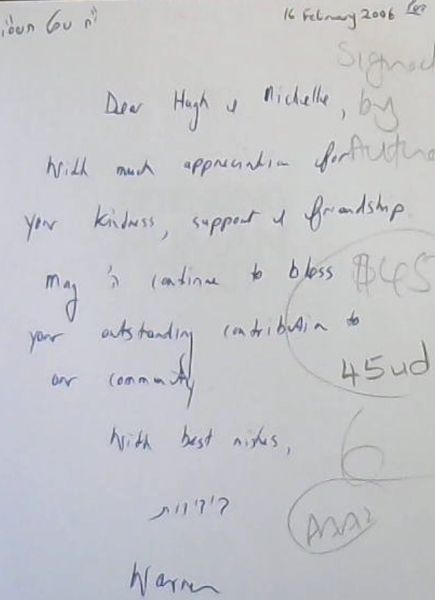 16 February 2006
Signed
Dear Hugh & Michelle, by
With much appreciation for
your kindness, support & friendship.
May ה' continue to bless $45
your outstanding contribution to
our community 45ud
With best wishes, 6
בידידות
Warren